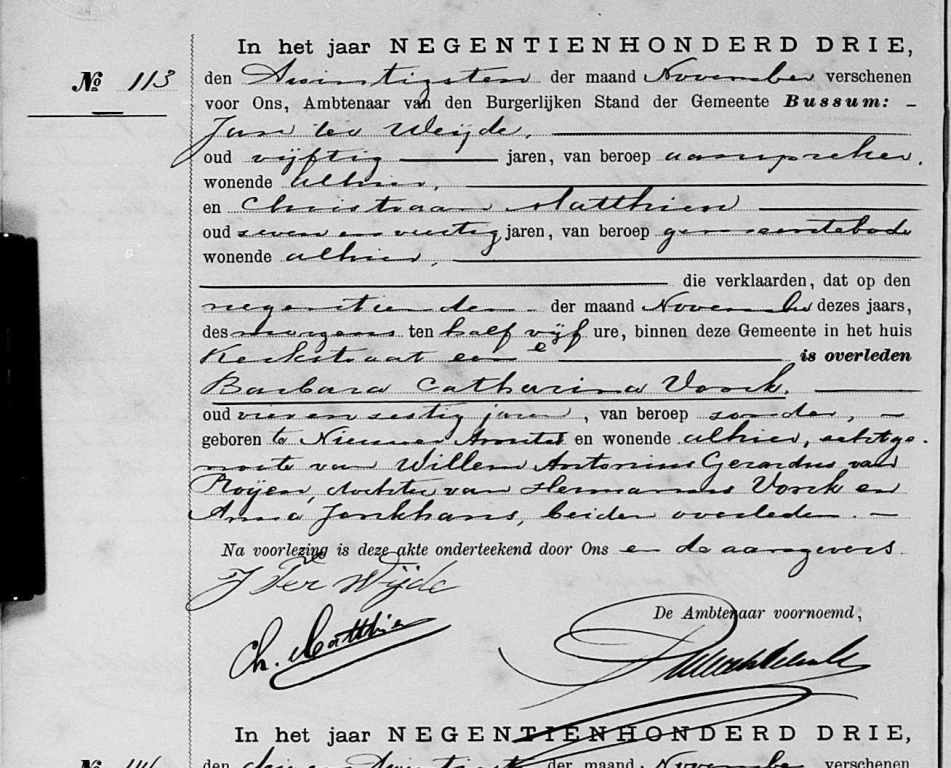 In het jaar NEGENTIENHONDERD DRIE,
№ 113
den Twintigsten der maand November verschenen
voor Ons, Ambtenaar van den Burgerlijken Stand der Gemeente Bussum: –
Jan ter Weijde,
oud vijftig jaren, van beroep aanspreker,
wonende alhier,
en Christiaan Matthieu
oud zeven en veertig jaren, van beroep gemeentebode
wonende alhier,
die verklaarden, dat op den
negentienden der maand November dezes jaars,
des morgens ten half vijf ure, binnen deze Gemeente in het huis
Kerkstraat een e is overleden
Barbara Catharina Vorck,
oud vier en zestig jaren, van beroep zonder, –
geboren te Nieuwer Amstel en wonende alhier, echtge-
noote van Willem Antonius Gerardus van
Roÿen, dochter van Hermanus Vorck en
Anna Jonkhans, beiden overleden. –
Na voorlezing is deze akte onderteekend door Ons en de aangevers
J Ter Wijde
De Ambtenaar voornoemd,
Ch. Matthieu
In het jaar NEGENTIENHONDERD DRIE,
№ 114
den der maand November verschenen